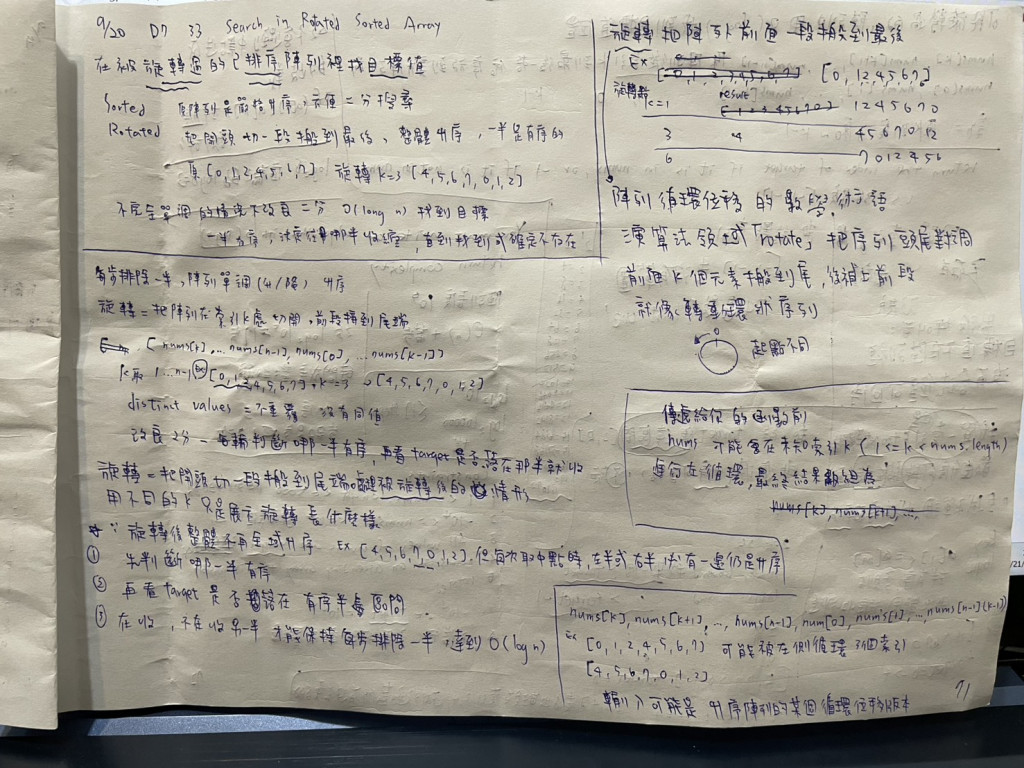 9/20 D7 33 Search in Rotated Sorted Array
在被旋轉過的已排序陣列裡找目標值
Sorted 原陣列是嚴格升序,方便二分搜尋
Rotated 把開頭切一段搬到最後、整體升序,一半是有序的
[0,1,2,4,5,6,7] 旋轉 k=3 [4,5,6,7,0,1,2]
不完全單調的情況下改良二分 O(long n) 找到目標
一半有序,決定往哪半收縮,直到找到或確定不存在
每步排除一半,陣列單調(升/降) 升序
旋轉=把陣列在索引k處切開,前段搬到尾端
[nums[k],...nums[n-1],nums[0],...nums[k-1]]
k取 1...n-1 Ex [0,1,2,4,5,6,7],k=3 →[4,5,6,7,0,1,2]
distinct values = 不重複 沒有同值
改良2分-每輪判斷哪一半有序,再看target是否落在那半就收
旋轉=把開頭切一段搬到尾端 被旋轉後的情形
用不同的k只是展示旋轉長什麼樣
∵ 旋轉後整體不再全域升序 Ex [4,5,6,7,0,1,2],但每次取中點時,左半或右半,必有一邊仍是升序
① 先判斷哪一半有序
② 再看target是否落在有序半邊區間
③ 在收,不在收另一半 才能保持每步排除一半,達到O(log n)
旋轉 把陣列前面一段搬到最後
Ex [0,1,2,4,5,6,7]
旋轉 k=1 result 1 2 4 5 6 7 0
3 4 4 5 6 7 0 12
6 7 0 1 2 4 5 6
陣列循環位移的數學術語
演算法領域「rotate」把序列頭尾對調
前面k個元素搬到尾,後補上前段
就像轉動環狀序列
起點不同
傳遞給你的函數前
nums 可能會在未知索引k(1<=k<nums.length)
進行左循環,最終結果數組為
nums[k],nums[k+1],...
nums[k],nums[k+1],...,nums[n-1],num[0],nums[1],...,nums[n-1](k-1)
Ex [0,1,2,4,5,6,7] 可能被左側循環 3個索引
[4,5,6,7,0,1,2]
輸入可能是升序陣列的某個循環位移版本
71